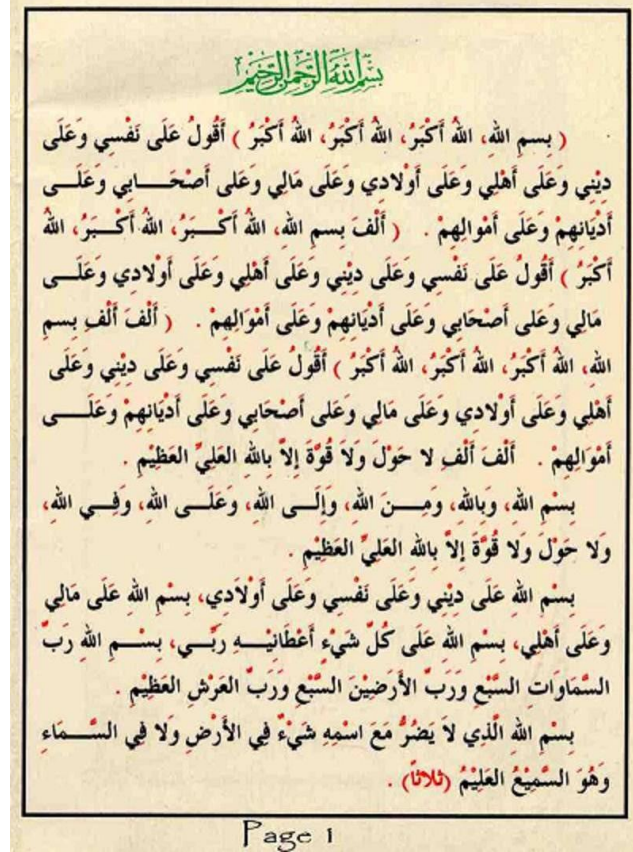 بِسْمِ اللهِ الرَّحْمٰنِ الرَّحِيْمِ
( بِسمِ اللهِ، اللهُ أَكْبَرُ، اللهُ أَكْبَرُ، اللهُ أَكْبَرُ ) أَقُولُ عَلَى نَفْسِي وَعَلَى
دِيْنِي وَعَلَى أَهْلِي وَعَلَى أَوْلادِي وَعَلَى مَالِي وَعَلى أَصْحَـــابِي وَعَلَـــى
أَدْيَانِهِمْ وَعَلَى أَمْوالِهِمْ . ( أَلْفَ بِسمِ اللهِ، اللهُ أَكْـــبَرُ، اللهُ أَكْـــبَرُ، اللهُ
أَكْبَرُ ) أَقُولُ عَلَى نَفْسِي وَعَلَى دِيْنِي وَعَلَى أَهْلِي وَعَلَى أَوْلادِي وَعَلَـــى
مَالِي وَعَلى أَصْحَابِي وَعَلَى أَدْيَانِهِمْ وَعَلَى أَمْوَالِهِمْ . ( أَلْفَ أَلْفِ بِسمِ
اللهِ، اللهُ أَكْبَرُ، اللهُ أَكْبَرُ، اللهُ أَكْبَرُ ) أَقُولُ عَلَى نَفْسِي وَعَلَى دِيْنِي وَعَلَى
أَهْلِي وَعَلَى أَوْلادِي وَعَلَى مَالِي وَعَلى أَصْحَابِي وَعَلَى أَدْيَانِهِمْ وَعَلَـــى
أَمْوَالِهِمْ . أَلْفَ أَلْفِ لا حَوْلَ وَلاَ قُوَّةَ إِلاَّ بِاللهِ العَلِيِّ العَظِيْمِ .
بِسْمِ اللهِ، وَبِاللهِ، وَمِـــنَ اللهِ، وَإِلَـــى اللهِ، وَعَلَـــى اللهِ، وَفِـــي اللهِ،
وَلا حَوْلَ وَلا قُوَّةَ إِلاَّ بِاللهِ العَلِيِّ العَظِيْمِ .
بِسْمِ اللهِ عَلَى دِيْنِي وَعَلَى نَفْسِي وَعَلَى أَوْلاَدِي، بِسْمِ اللهِ عَلَى مَالِي
وَعَلَى أَهْلِي، بِسْمِ اللهِ عَلَى كُلِّ شَيْءٍ أَعْطَانِيْـــهِ رَبِّـــي، بِسْـــمِ اللهِ رَبِّ
السَّمَاوَات السَّبْعِ وَرَبِّ الأَرَضِيْنَ السَّبْعِ وَرَبِّ العَرْشِ العَظِيْمِ .
بِسْمِ اللهِ الَّذِي لاَ يَضُرُّ مَعَ اسْمِهِ شَيْءٌ فِي الأَرْضِ وَلا فِي السَّـــمَاءِ
وَهُوَ السَّمِيْعُ العَلِيْمُ (ثَلاثاً) .
Page 1